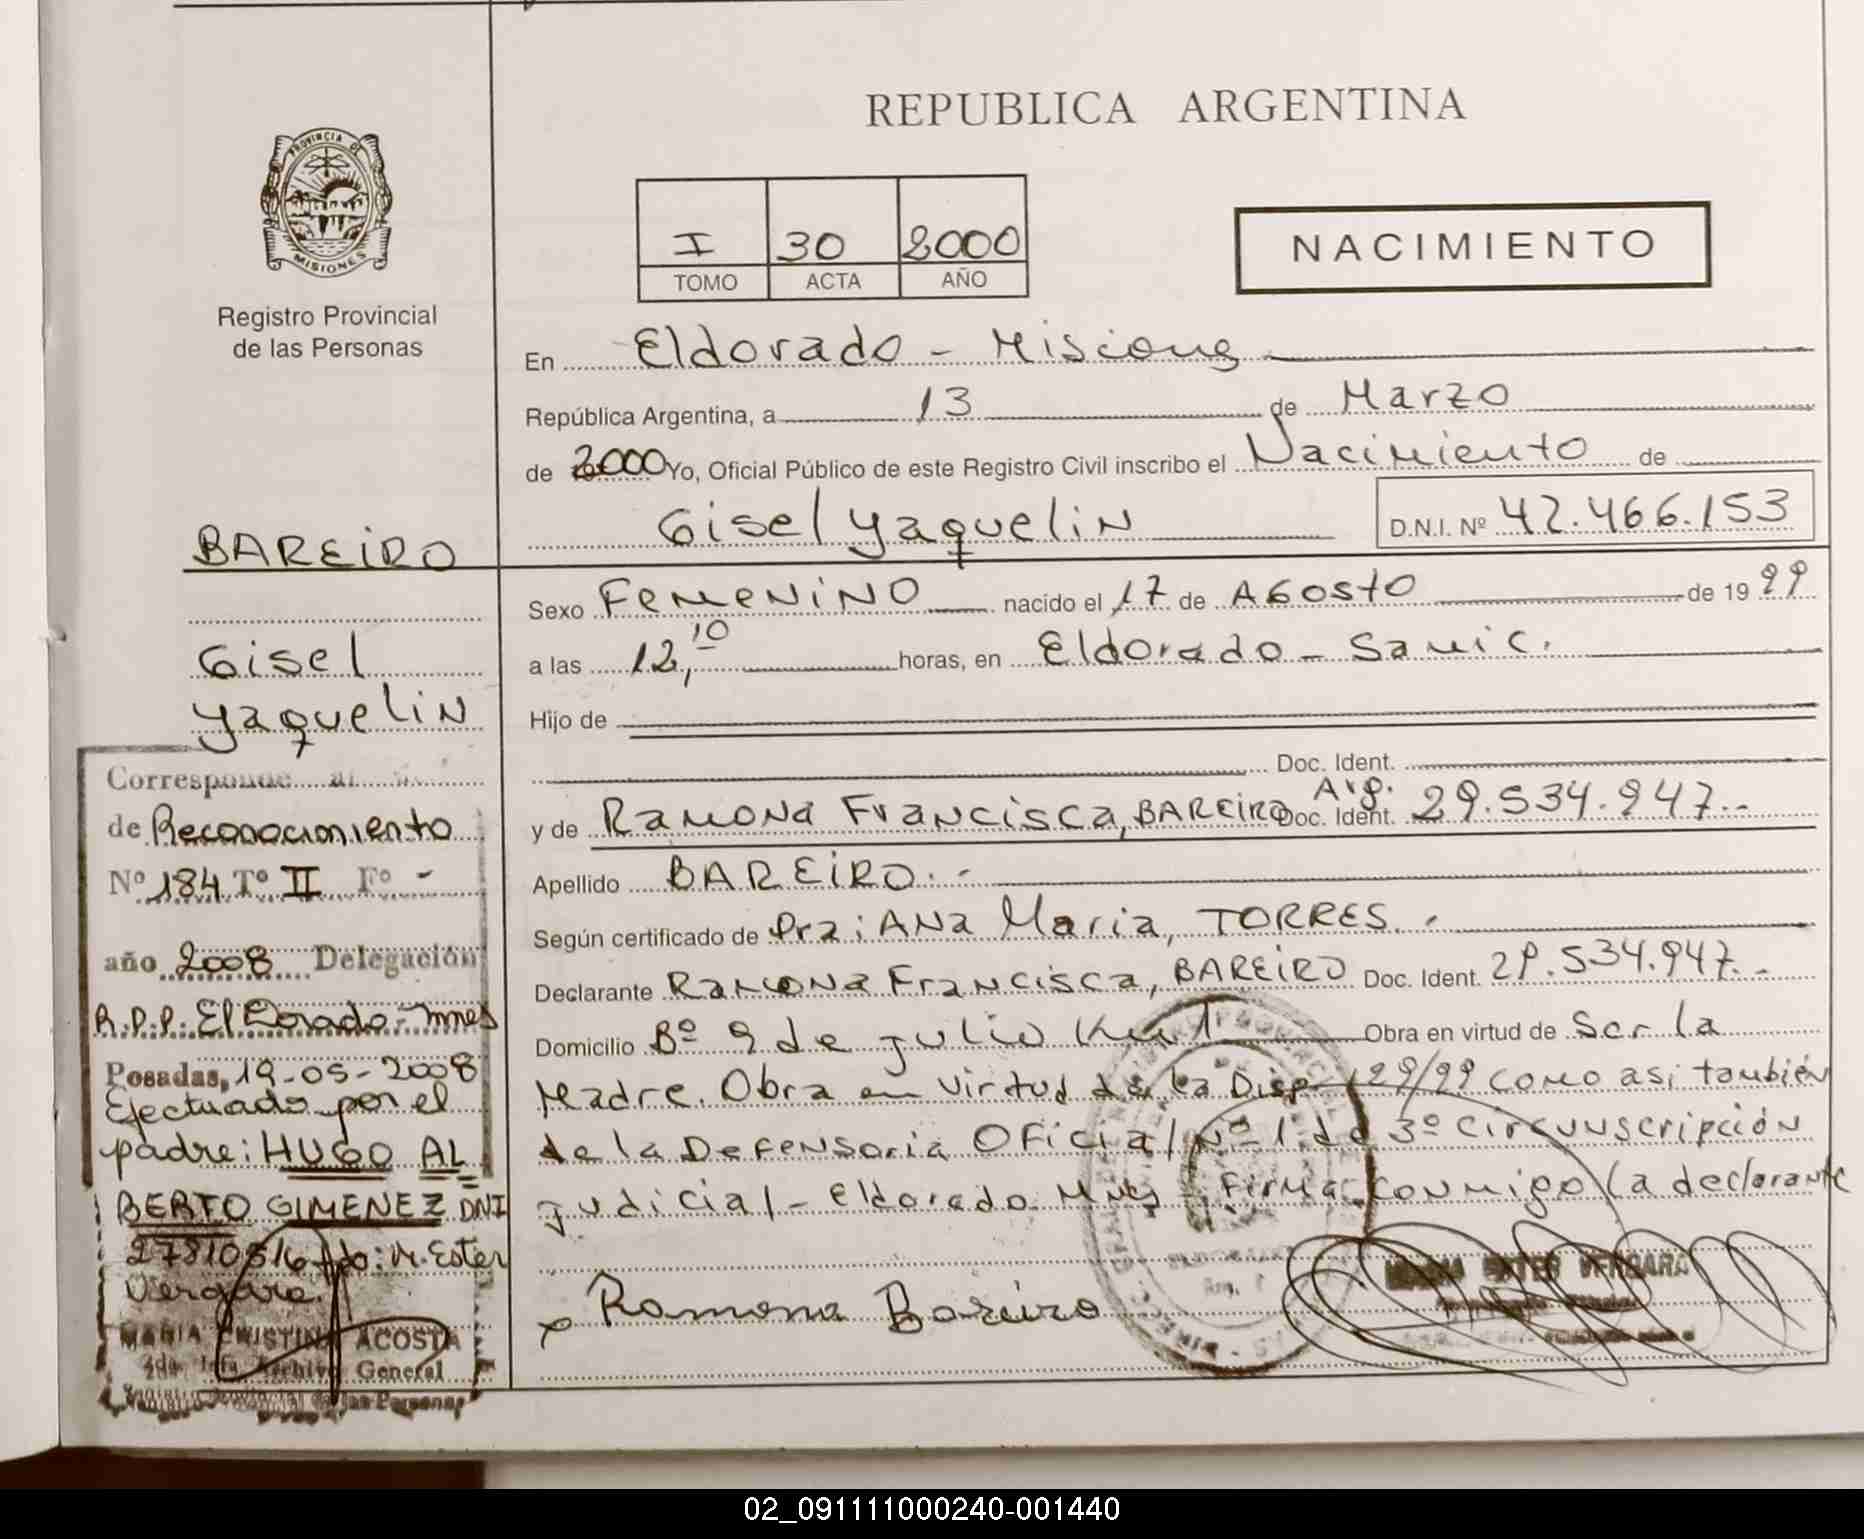 REPUBLICA ARGENTINA
PROVINCIA DE
MISIONES
Registro Provincial
de las Personas
I 30 2000
TOMO ACTA AÑO
NACIMIENTO
En Eldorado - Misiones
República Argentina, a 13 de Marzo
de 2000 Yo, Oficial Público de este Registro Civil inscribo el Nacimiento de
Gisel Yaquelin D.N.I. Nº 42.466.153
Sexo Femenino nacido el 17 de Agosto de 19 99
a las 12,10 horas, en Eldorado - Samic.
Hijo de
Doc. Ident.
y de Ramona Francisca, BAREIRO Doc. Ident. Arg. 29.534.947.-
Apellido BAREIRO.-
Según certificado de Dra: Ana Maria, TORRES.-
Declarante Ramona Francisca, BAREIRO Doc. Ident. 29.534.947.-
Domicilio Bº 9 de Julio Obra en virtud de Ser la
Madre. Obra en virtud de la Disp. 129/99 como asi también
de la Defensoria Oficial Nº 1 de 3º Circunscripción
Judicial - Eldorado Mnes Firma conmigo la declarante
Ramona Bareiro
MARIA ESTER VERGARA
BAREIRO
Gisel
Yaquelin
Corresponde al
de Reconocimiento
Nº 184 Tº II Fº -
año 2008 Delegación
R.P.P. El Dorado - Mnes
Posadas, 19-05-2008
Efectuado por el
padre: HUGO AL
BERTO GIMENEZ DNI
27810516 fdo: M. Ester
Vergara.
MARIA CRISTINA ACOSTA
2da. Jefa Archivo General
Registro Provincial de las Personas
02_091111000240-001440